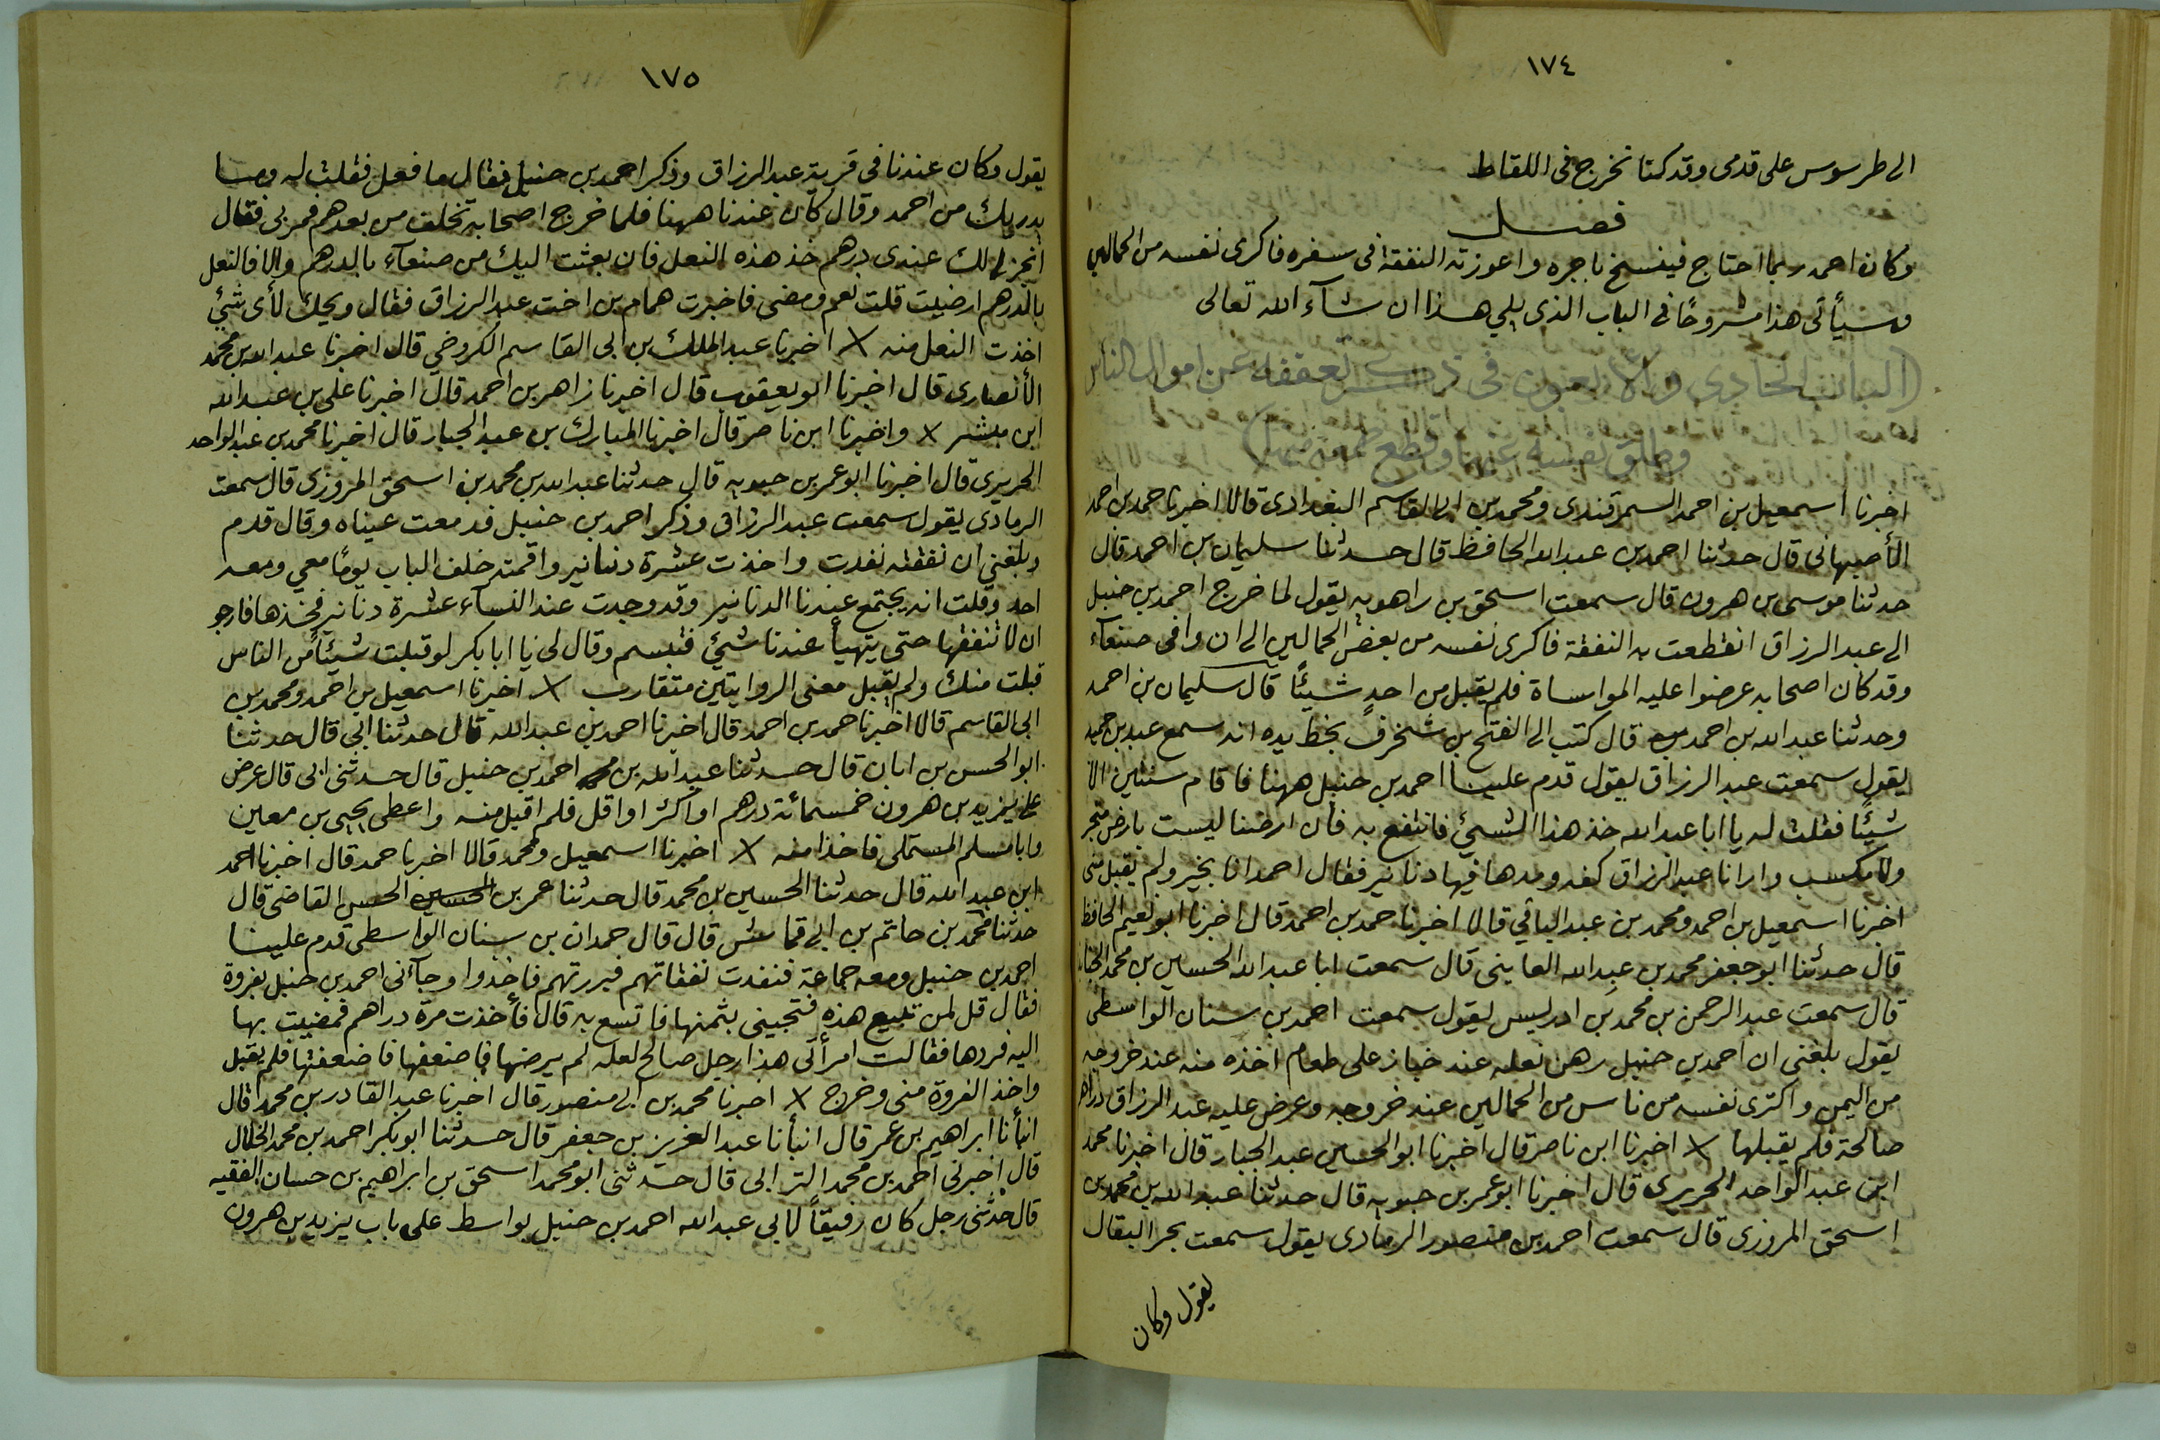 ١٧٤
الى طرسوس على قدمى وقد كنا نخرج فى اللقاط
فصل
وكان احمد ربما احتاج فينسخ باجره واعوزته النفقة فى سفره فاكرى نفسه من الحمالين
وسيأتى هذا مشروحًا فى الباب الذى يلي هذا ان شآء الله تعالى
(الباب الحادى والاربعون فى ذكر تعففه عن اموال الناس
وطلق نفسه عنها وقطع طمعه منها)
اخبرنا اسمعيل بن احمد السمرقندى ومحمد بن ابى القاسم البغدادى قالا اخبرنا حمد بن احمد
الأصبهانى قال حدثنا احمد بن عبد الله الحافظ قال حدثنا سليمان بن احمد قال
حدثنا موسى بن هرون قال سمعت اسحق بن راهويه يقول لما خرج احمد بن حنبل
الى عبد الرزاق انقطعت به النفقة فاكرى نفسه من بعض الحمالين الى ان وافى صنعآء
وقد كان اصحابه عرضوا عليه المواساة فلم يقبل من احدٍ شيئًا قال سليمان بن احمد
وحدثنا عبد الله بن احمد قال كتب الى الفتح بن شخرف بخط يده انه سمع عبد بن حميد
يقول سمعت عبد الرزاق يقول قدم علينا احمد بن حنبل ههنا فاقام سنتين الا
شيئًا فقلت له يا ابا عبد الله خذ هذا الشيئ فانتفع به فان ارضنا ليست بارض متجر
ولا مكسب وارانا عبد الرزاق كفه ومدها فيها دنانير فقال احمد انا بخير ولم يقبل منى
اخبرنا اسمعيل بن احمد ومحمد بن عبد الباقي قالا اخبرنا حمد بن احمد قال اخبرنا ابو نعيم الحافظ
قال حدثنا ابو جعفر محمد بن عبد الله القاينى قال سمعت ابا عبد الله الحسين بن محمد
قال سمعت عبد الرحمن بن محمد بن ادريس يقول سمعت احمد بن سنان الواسطى
يقول بلغنى ان احمد بن حنبل رهن نعله عند خباز على طعام اخذه منه عند خروجه
من اليمن واكترى نفسه من ناس من الحمالين عند خروجه وعرض عليه عبد الرزاق دراهم
صالحة فلم يقبلها × اخبرنا ابن ناصر قال اخبرنا ابو الحسين عبد الجبار قال اخبرنا محمد
ابن عبد الواحد الحريرى قال اخبرنا ابو عمر بن حيويه قال حدثنا عبد الله بن محمد بن
اسحق المروزى قال سمعت احمد بن منصور الرمادى يقول سمعت بحر البقال
يقول وكان
١٧٥
يقول وكان عندنا في قرية عبد الرزاق وذكر احمد بن حنبل فقال ما فعل فقلت له وما
يدريك من احمد وقال كان عندنا ههنا فلما خرج اصحابه تخلف من بعدهم فمر بى فقال
لك عندى درهم خذ هذه النعل فان بعثت اليك من صنعآء بالدرهم والا فالنعل
بالدرهم ارضيت قلت نعم ومضى فاخبرت همام بن اخت عبد الرزاق فقال ويحك لأى شئ
اخذت النعل منه × اخبرنا عبد الملك بن ابى القاسم الكروخي قال اخبرنا عبد الله بن محمد
الأنصارى قال اخبرنا ابو يعقوب قال اخبرنا زاهر بن احمد قال اخبرنا على بن عبد الله
ابن مبشر × واخبرنا ابن ناصر قال اخبرنا المبارك بن عبد الجبار قال اخبرنا محمد بن عبد الواحد
الحريرى قال اخبرنا ابو عمر بن حيويه قال حدثنا عبد الله بن محمد بن اسحق المروزى قال سمعت
الرمادى يقول سمعت عبد الرزاق وذكر احمد بن حنبل فدمعت عيناه وقال قدم
وبلغنى ان نفقته نفدت واخذت عشرة دنانير واقمته خلف الباب يومًا معي ومعه
احد وقلت انه يجتمع عندنا الدنانير وقد وجدت عند النسآء عشرة دنانير فخذها فارجو
ان لا تنفقها حتى يتهيأ عندنا شئ فتبسم وقال لى يا ابا بكر لو قبلت شيئًا من الناس
قبلت منك ولم يقبل معنى الروايتين متقارب × اخبرنا اسمعيل بن احمد ومحمد بن
ابى القاسم قالا اخبرنا حمد بن احمد قال اخبرنا احمد بن عبد الله قال حدثنا ابى قال حدثنا
ابو الحسن بن ابان قال حدثنا عبد الله بن احمد بن حنبل قال حدثنى ابى قال عرض
على يزيد بن هرون خمسمائة درهم او اكثر او اقل فلم اقبل منه واعطى يحيى بن معين
وابا مسلم المستملى فاخذا منه × اخبرنا اسمعيل ومحمد قالا اخبرنا حمد قال اخبرنا احمد
ابن عبد الله قال حدثنا الحسين بن محمد قال حدثنا عمر بن الحسن القاضى قال
حدثنا محمد بن حاتم بن ابى قماش قال قال حمدان بن سنان الواسطى قدم علينا
احمد بن حنبل ومعه جماعة فنفدت نفقاتهم فبررتهم فاخذوا وجآءنى احمد بن حنبل بفروة
فقال قل لمن تبيع هذه فتجينى بثمنها فاتسع به قال فأخذت صرة دراهم فمضيت بها
اليه فردها فقالت امرأتى هذا رجل صالح لعله لم يرضها فاضعفها فاضعفتها فلم يقبل
واخذ الفروة منى وخرج × اخبرنا محمد بن ابى منصور قال اخبرنا عبد القادر بن محمد قال
انبأنا ابراهيم بن عمر قال انبأنا عبد العزيز بن جعفر قال حدثنا ابو بكر احمد بن محمد الخلال
قال اخبرنى احمد بن محمد الترابى قال حدثنى ابو محمد اسحق بن ابراهيم بن حسان الفقيه
قال حدثنى رجل كان رفيقاً لابى عبد الله احمد بن حنبل بواسط على باب يزيد بن هرون